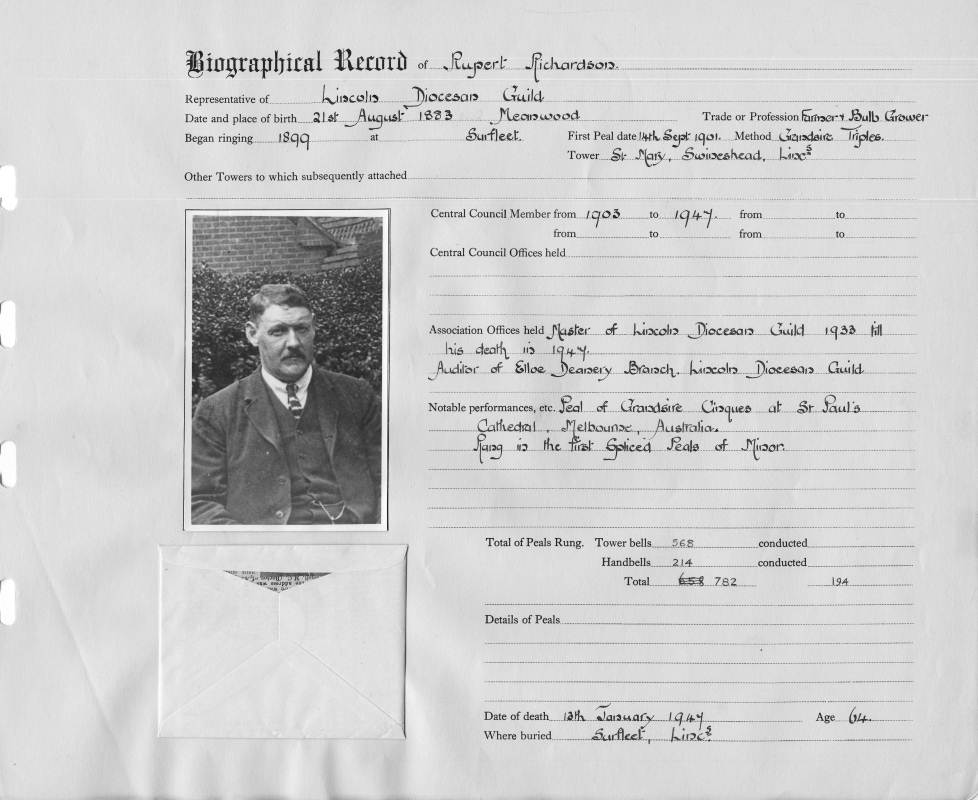 Biographical Record of Rupert Richardson.
Representative of Lincoln Diocesan Guild
Date and place of birth 21st August 1883 Meanwood Trade or Profession Farmer & Bulb Grower
Began ringing 1899 at Surfleet. First Peal date 14th Sept 1901. Method Grandsire Triples.
Tower St Mary, Swineshead, Lincs
Other Towers to which subsequently attached
Central Council Member from 1903 to 1947. from to
from to from to
Central Council Offices held
Association Offices held Master of Lincoln Diocesan Guild 1933 till
his death in 1947.
Auditor of Elloe Deanery Branch, Lincoln Diocesan Guild
Notable performances, etc. Peal of Grandsire Cinques at St Paul's
Cathedral, Melbourne, Australia.
Rang in the first Spliced Peals of Minor.
Total of Peals Rung. Tower bells 568 conducted
Handbells 214 conducted
Total 658 782 194
Details of Peals
Date of death 13th January 1947 Age 64.
Where buried Surfleet, Lincs